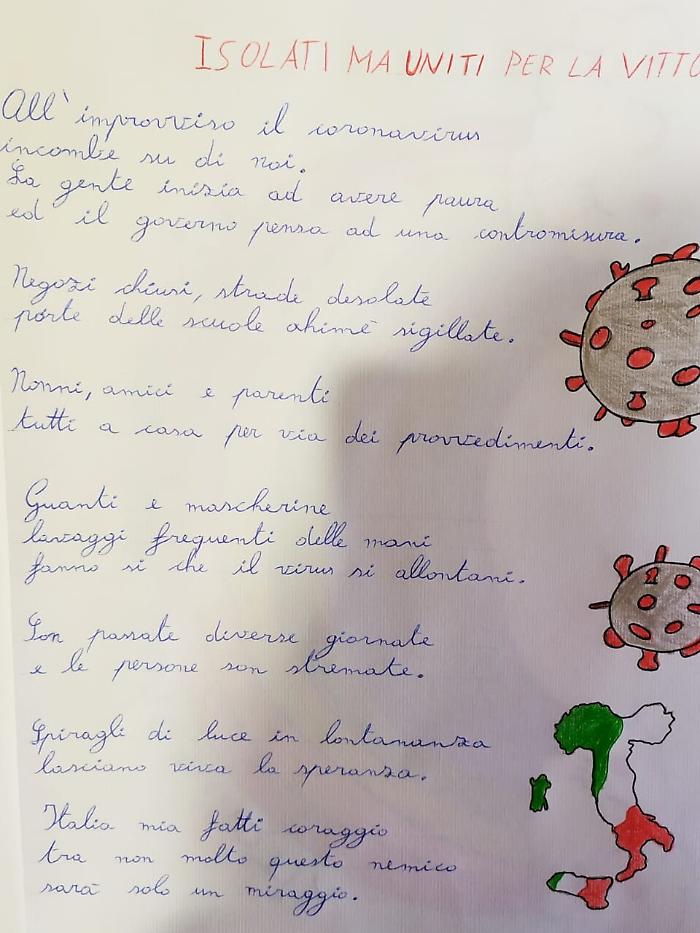 ISOLATI MA UNITI PER LA VITTO
All'improvviso il coronavirus
incombe su di noi.
La gente inizia ad avere paura
ed il governo pensa ad una contromisura.
Negozi chiusi, strade desolate
porte delle scuole ahimè sigillate.
Nonni, amici e parenti
tutti a casa per via dei provvedimenti.
Guanti e mascherine
lavaggi frequenti delle mani
fanno sì che il virus si allontani.
Son passate diverse giornate
e le persone son stremate.
Spiragli di luce in lontananza
lasciano viva la speranza.
Italia mia fatti coraggio
tra non molto questo nemico
sarà solo un miraggio.